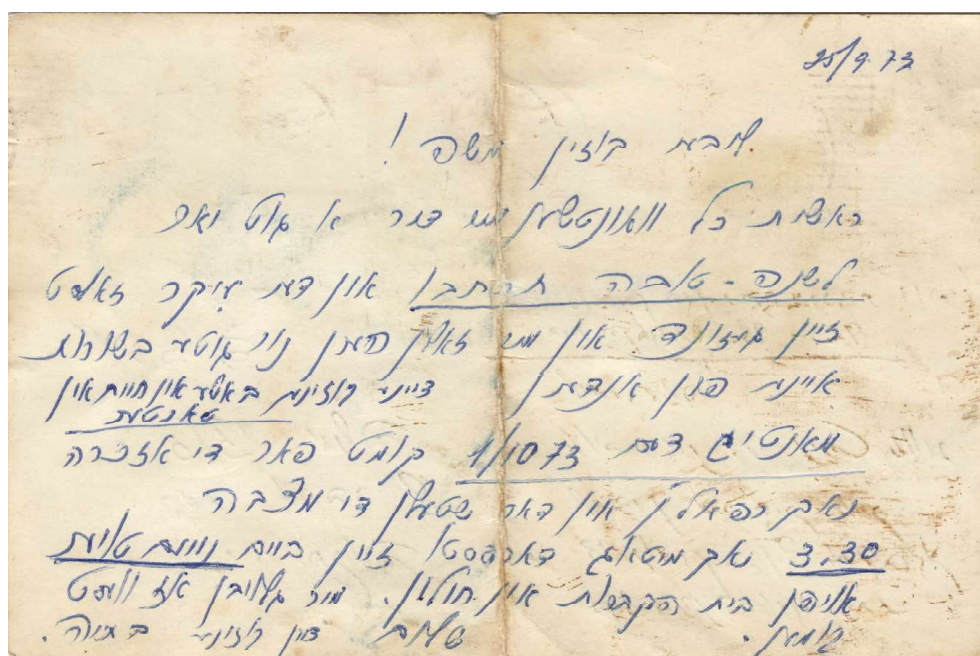 25/9.73
קוזין משה !
ראשית כל וואונטשען מיר דיר א גוט יאר
לשנה - טובה תכתבו און דער עיקר זאלסט
זיין געזונד און מיר זאלן הערן נור גוטע בשורות
איינער פון אנדערן דיינע קוזינעס באשע אין חיים אין
טאכטער
מאנטיג דעם 1/10 73 קומט פאר די אזכרה
נאך רפאל'ן אין דאס שטעלן די מצבה
3.30 נאך מיטאג דארפסטו זיין ביים טויער
אויפן בית הקברות אין חולון. מיר גלויבן אז וועסט
קומען. שלום דיין קוזינע